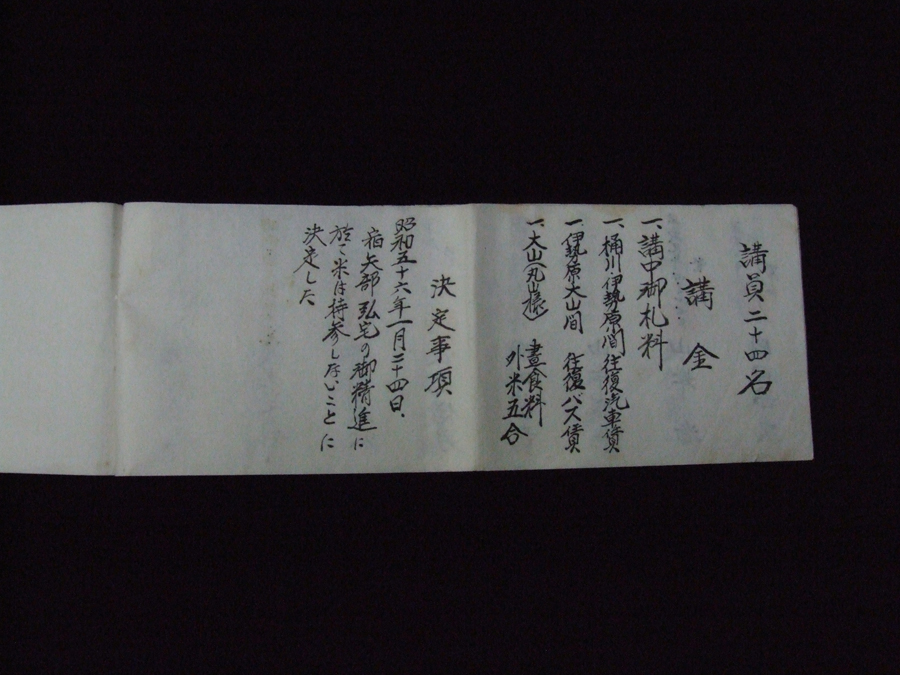 講員二十四名
講金
一、講中御札料
一、桶川伊勢原間往復汽車賃
一伊勢原大山間 往復バス賃
一、大山(丸山様) 晝食料
外米五合
決定事項
昭和五十六年一月二十四日、
宿矢部弘宅の御精進に
於て米は持参しないことに
決定した